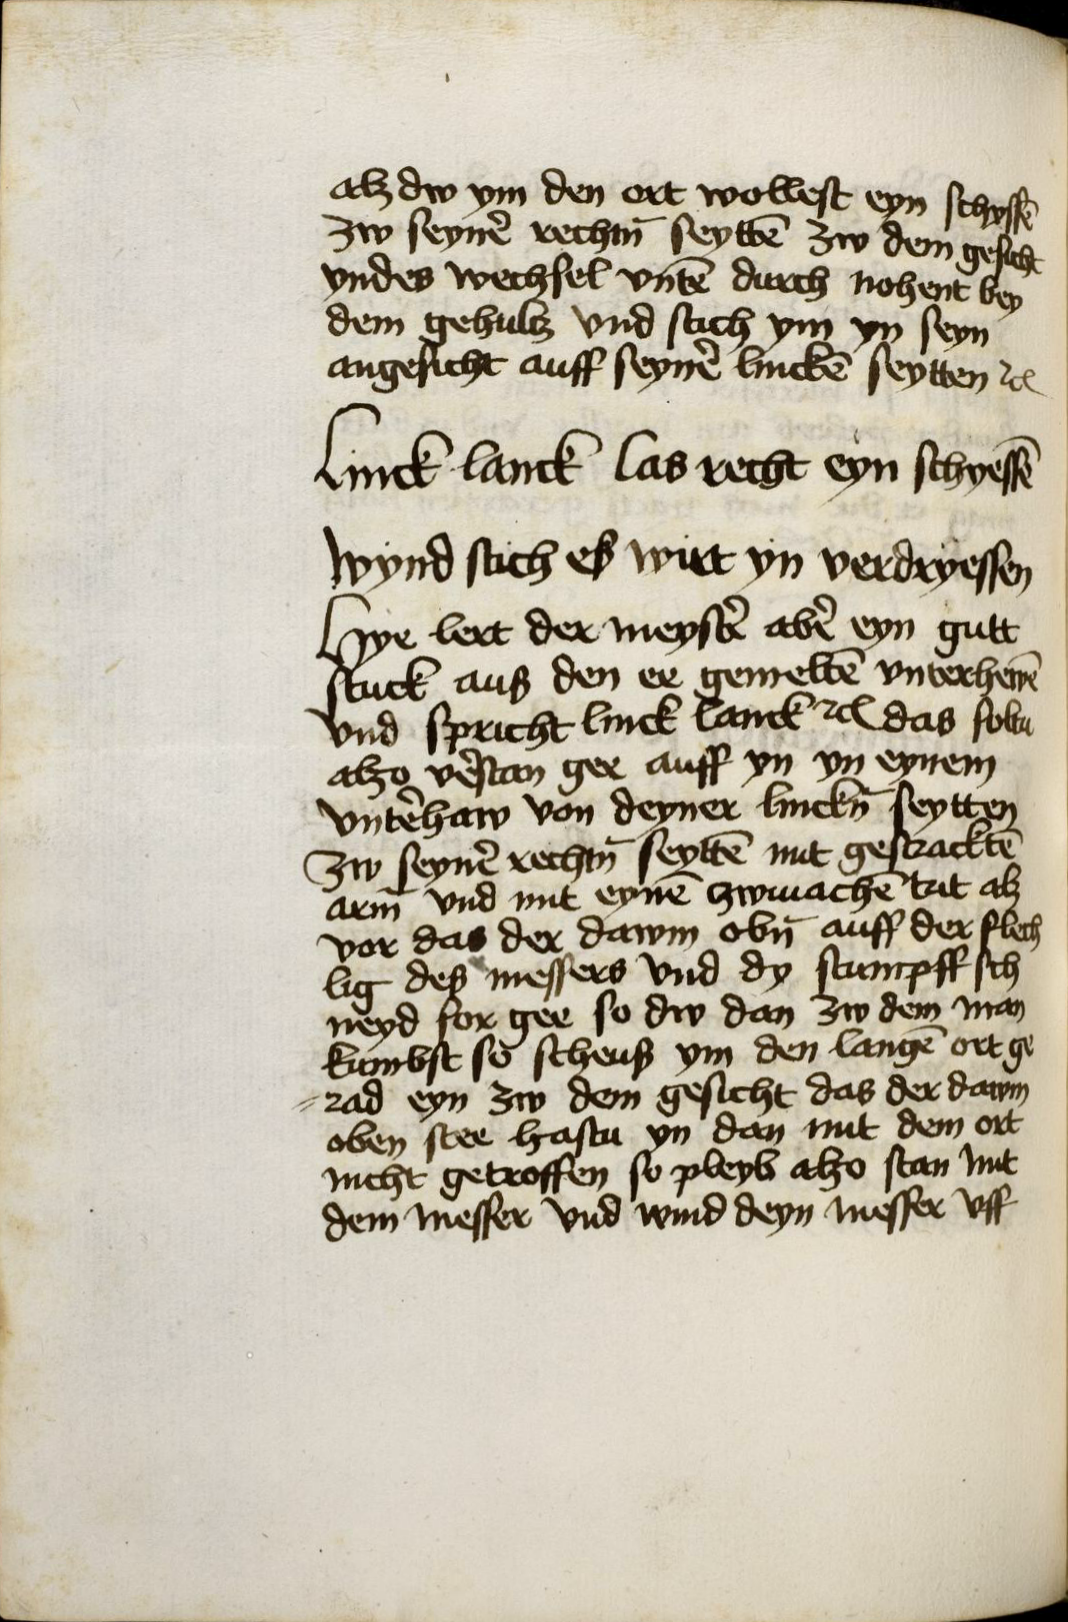 alz dw ym den ort wollest eyn schyssē
zw seynẽ rechtn̄ seyttē zw dem gesicht
yndes wechsel vntē durch nohent bey
dem gehultz vnd stich ym yn seyn
angesicht auff seynẽ linckē seytten ⁊c̃
Linck lanck las recht eyn schyessē
Wynd stich eß wirt yn verdryessen
Hye lert der meystẽ abẽ eyn gutt
stuck auß den ee gemeltē vnterhenē
vnd spricht linck lanck ⁊c̃ das soltu
alzo vẽstan gee auff yn yn eynem
vntẽhaw von deyner linckn̄ seytten
zw seynẽ rechtn̄ seyttē mit gestracktē
arm̄ vnd mit eynē zwuachē trit alz
vor das der dawm obn̄ auff der flech
lig deß messers vnd dy stumpff sch
neyd for gee so dw dan zw dem man
kumbst so scheuß ym den langē ort ge
=rad eyn zw dem gesicht das der dawm
oben stee hastu yn dan mit dem ort
nicht getroffen so pleyb alzo stan mit
dem messer vnd wind deyn messer vff